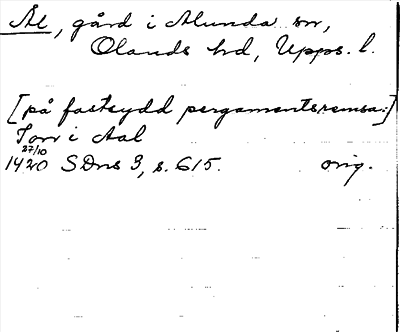 Ål, gård i Alunda sn,
Olands hd, Upps. l.
[på fastsydd pergamentsremsa:]
Torr i Aal
27/10
1420 SDns 3, s. 615. orig.